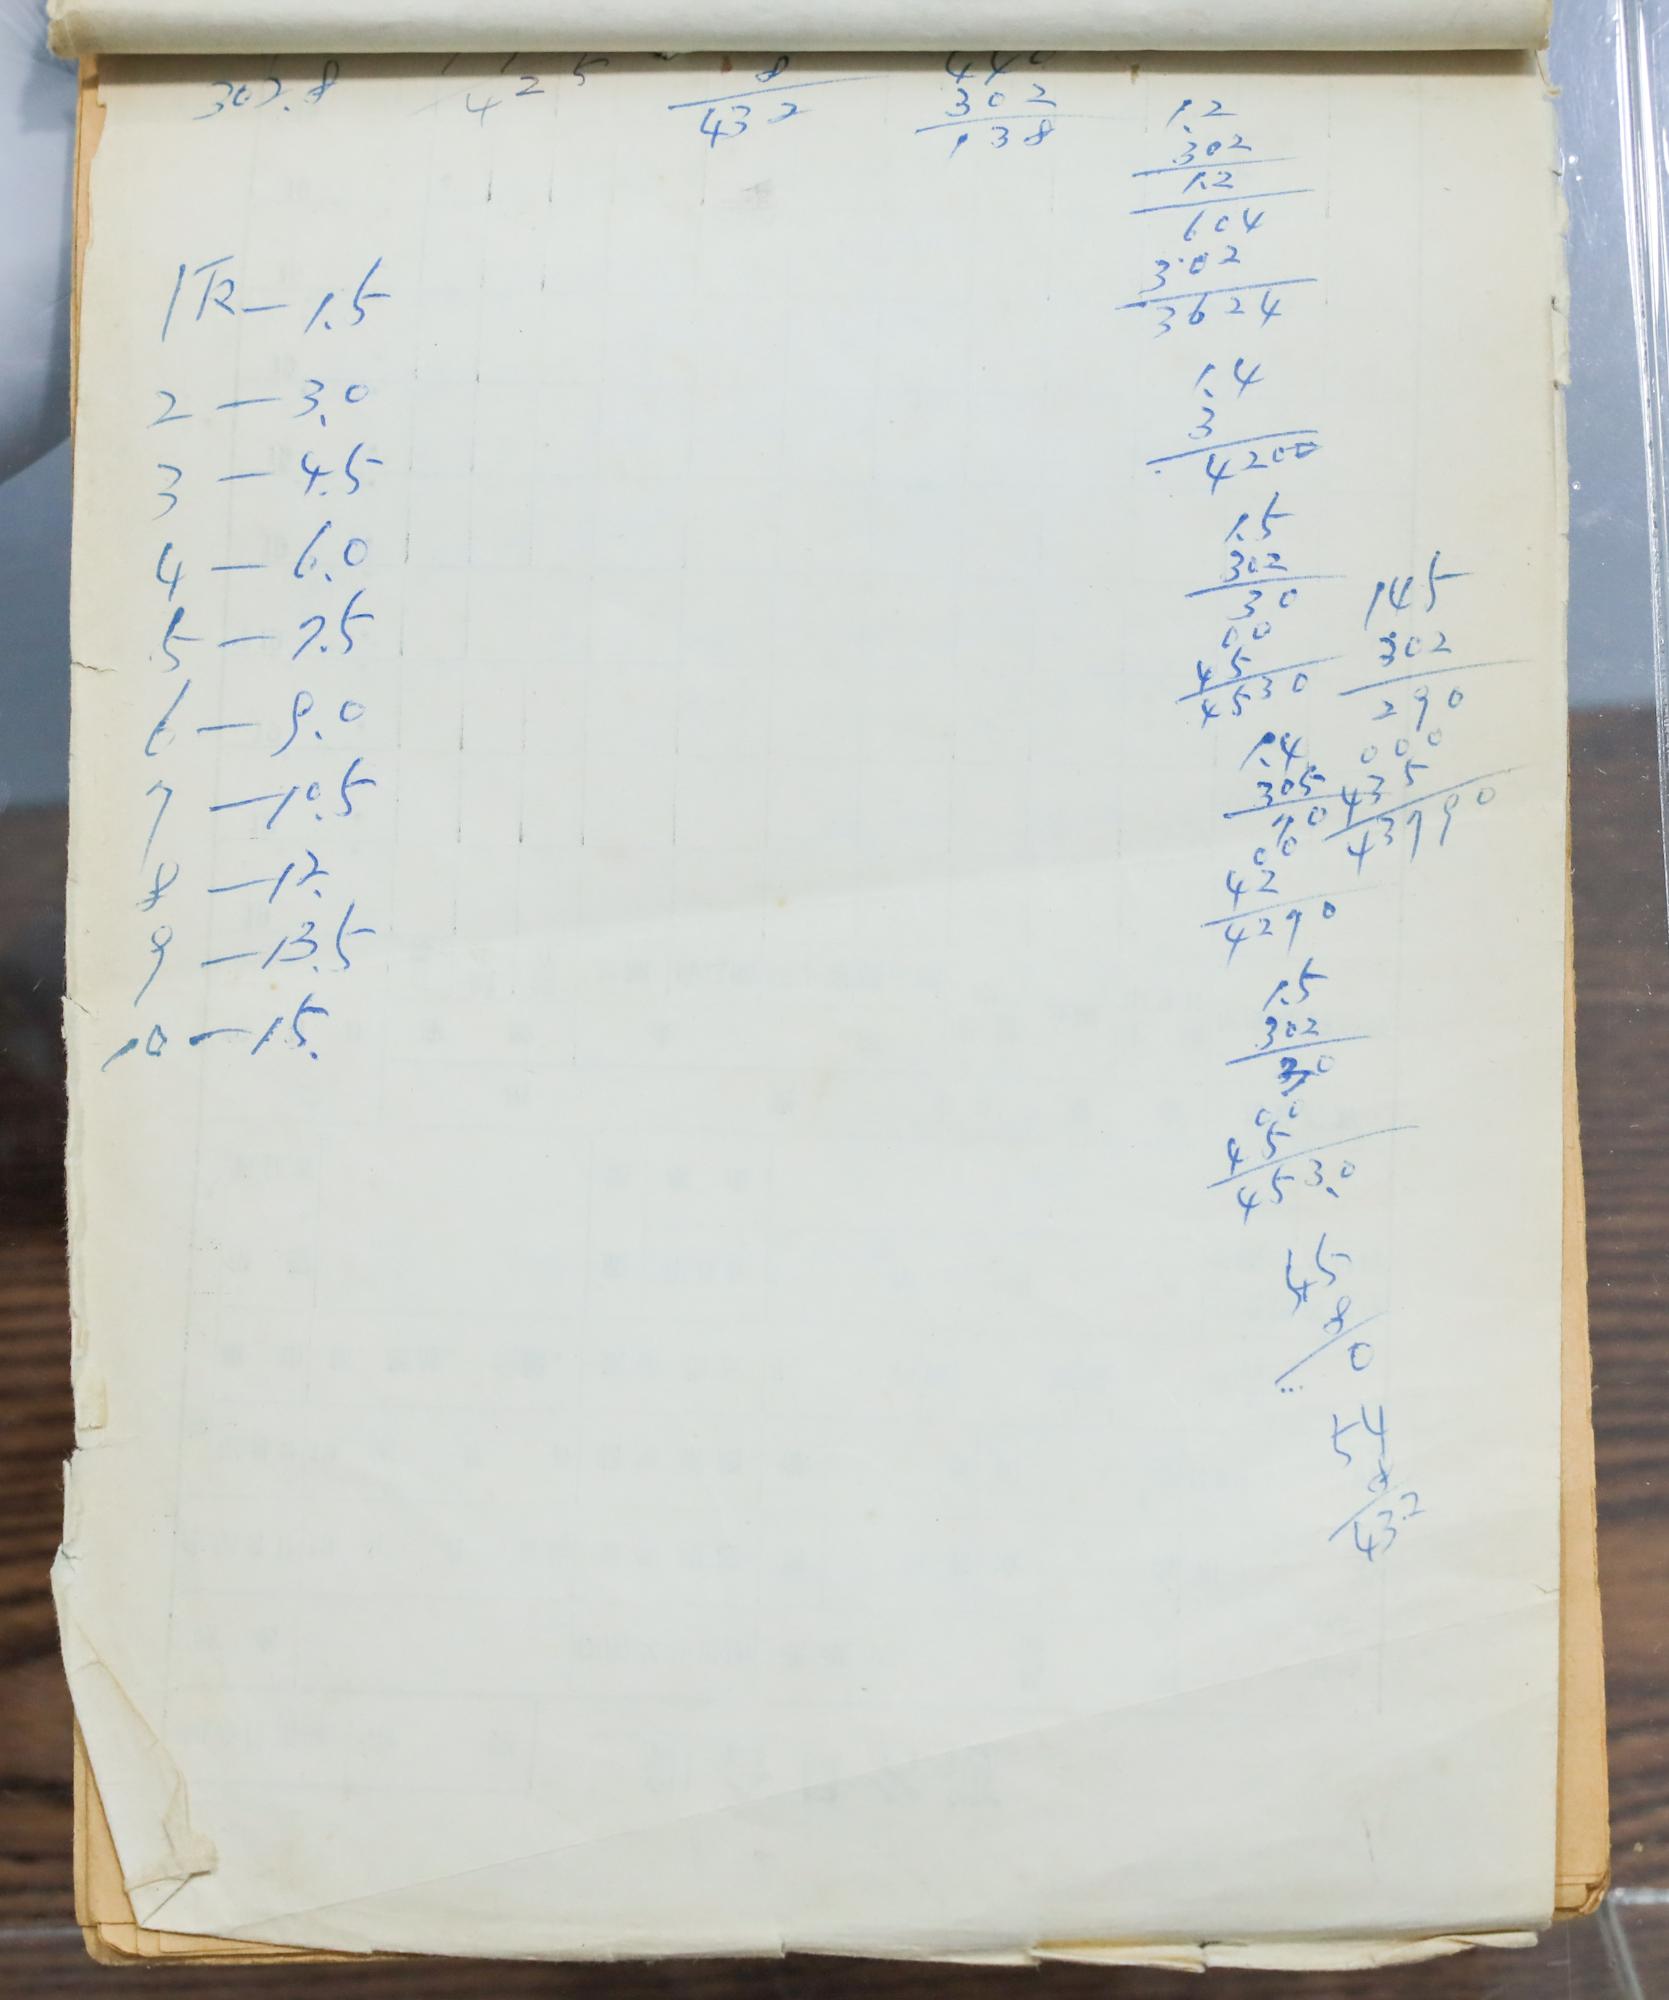 302.8
425
8
432
440
302
138
1R — 1.5
2 — 3.0
3 — 4.5
4 — 6.0
5 — 7.5
6 — 9.0
7 — 10.5
8 — 12.
9 — 13.5
10 — 15.
1.2
302
1.2
604
302
3624
1.4
3
4200
1.5
302
30
00
45
4530
145
302
290
000
435
43790
1.4
305
70
00
42
4270
1.5
302
30
00
45
453.0
45
8
0
54
8
432